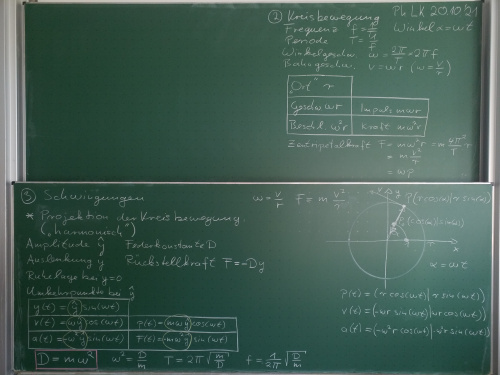 ② Kreisbewegung
Ph LK 20.10.21
Frequenz f =
Winkel α = ωt
Periode T =
Winkelgeschw. ω = 2π/T = 2πf
Bahngeschw. v = ωr (ω = v/r)
"Ort" r
Geschw ωr Impuls mωr
Beschl. ω²r Kraft mω²r
Zentripetalkraft F = mω²r = m 4π²/T r
= m v²/r
= ωp
③ Schwingungen
ω = v/r F = m v²/r
* Projektion der Kreisbewegung
("harmonisch")
Amplitude ŷ Federkonstante D
Auslenkung y Rückstellkraft F = -Dy
Ruhelage bei y=0
Umkehrpunkte bei ŷ
y(t) = ŷ sin(ωt)
v(t) = ωŷ cos(ωt) p(t) = mωŷ cos(ωt)
a(t) = -ω²ŷ sin(ωt) F(t) = -mω²ŷ sin(ωt)
D = mω² ω² = D/m T = 2π√(m/D) f = 1/2π √(D/m)
y
P(r cos(α)|r sin(α))
x
α = ωt
p(t) = (r cos(ωt) | r sin(ωt))
v(t) = (-ωr sin(ωt) | ωr cos(ωt))
a(t) = (-ω²r cos(ωt) | -ω²r sin(ωt))